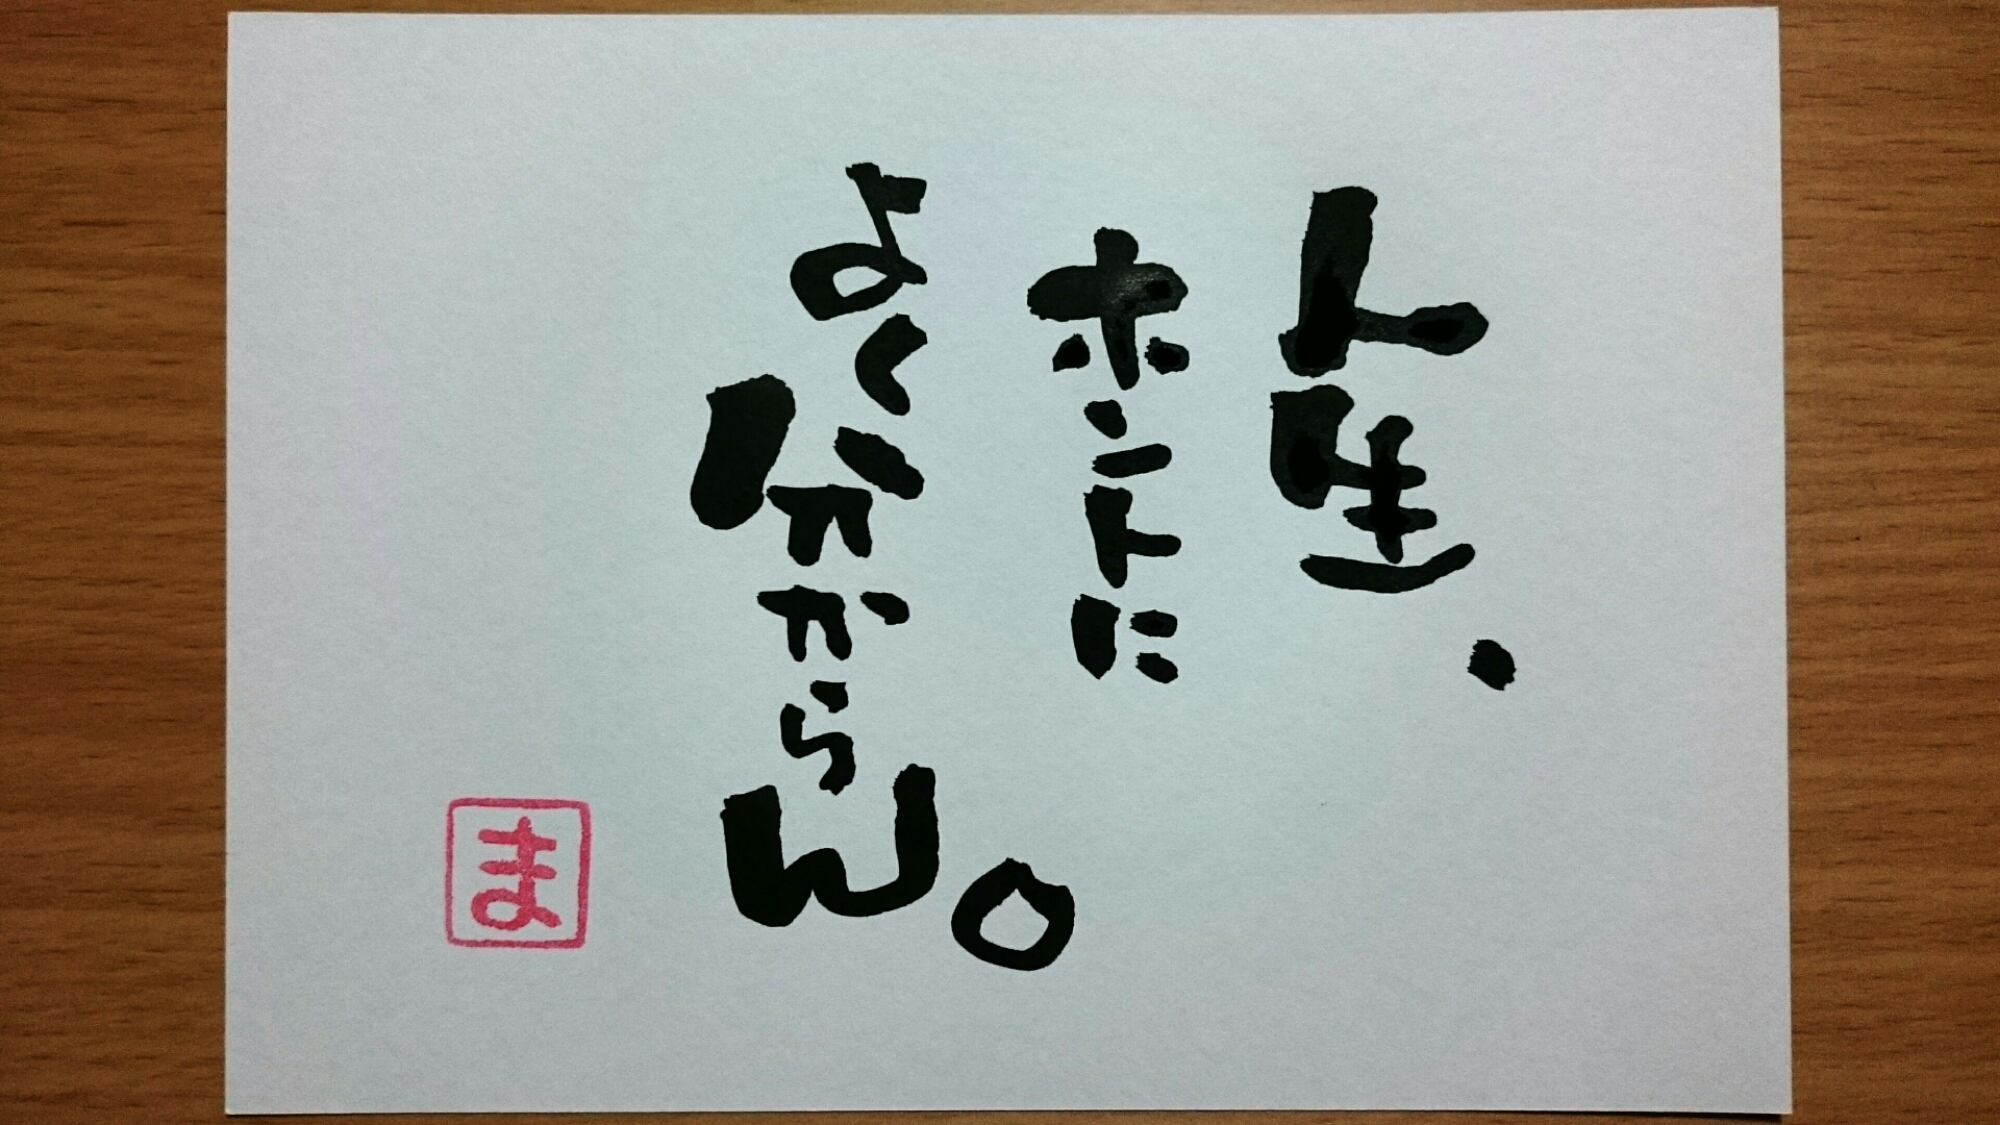 人生、
ホントに
よく分からん。
ま